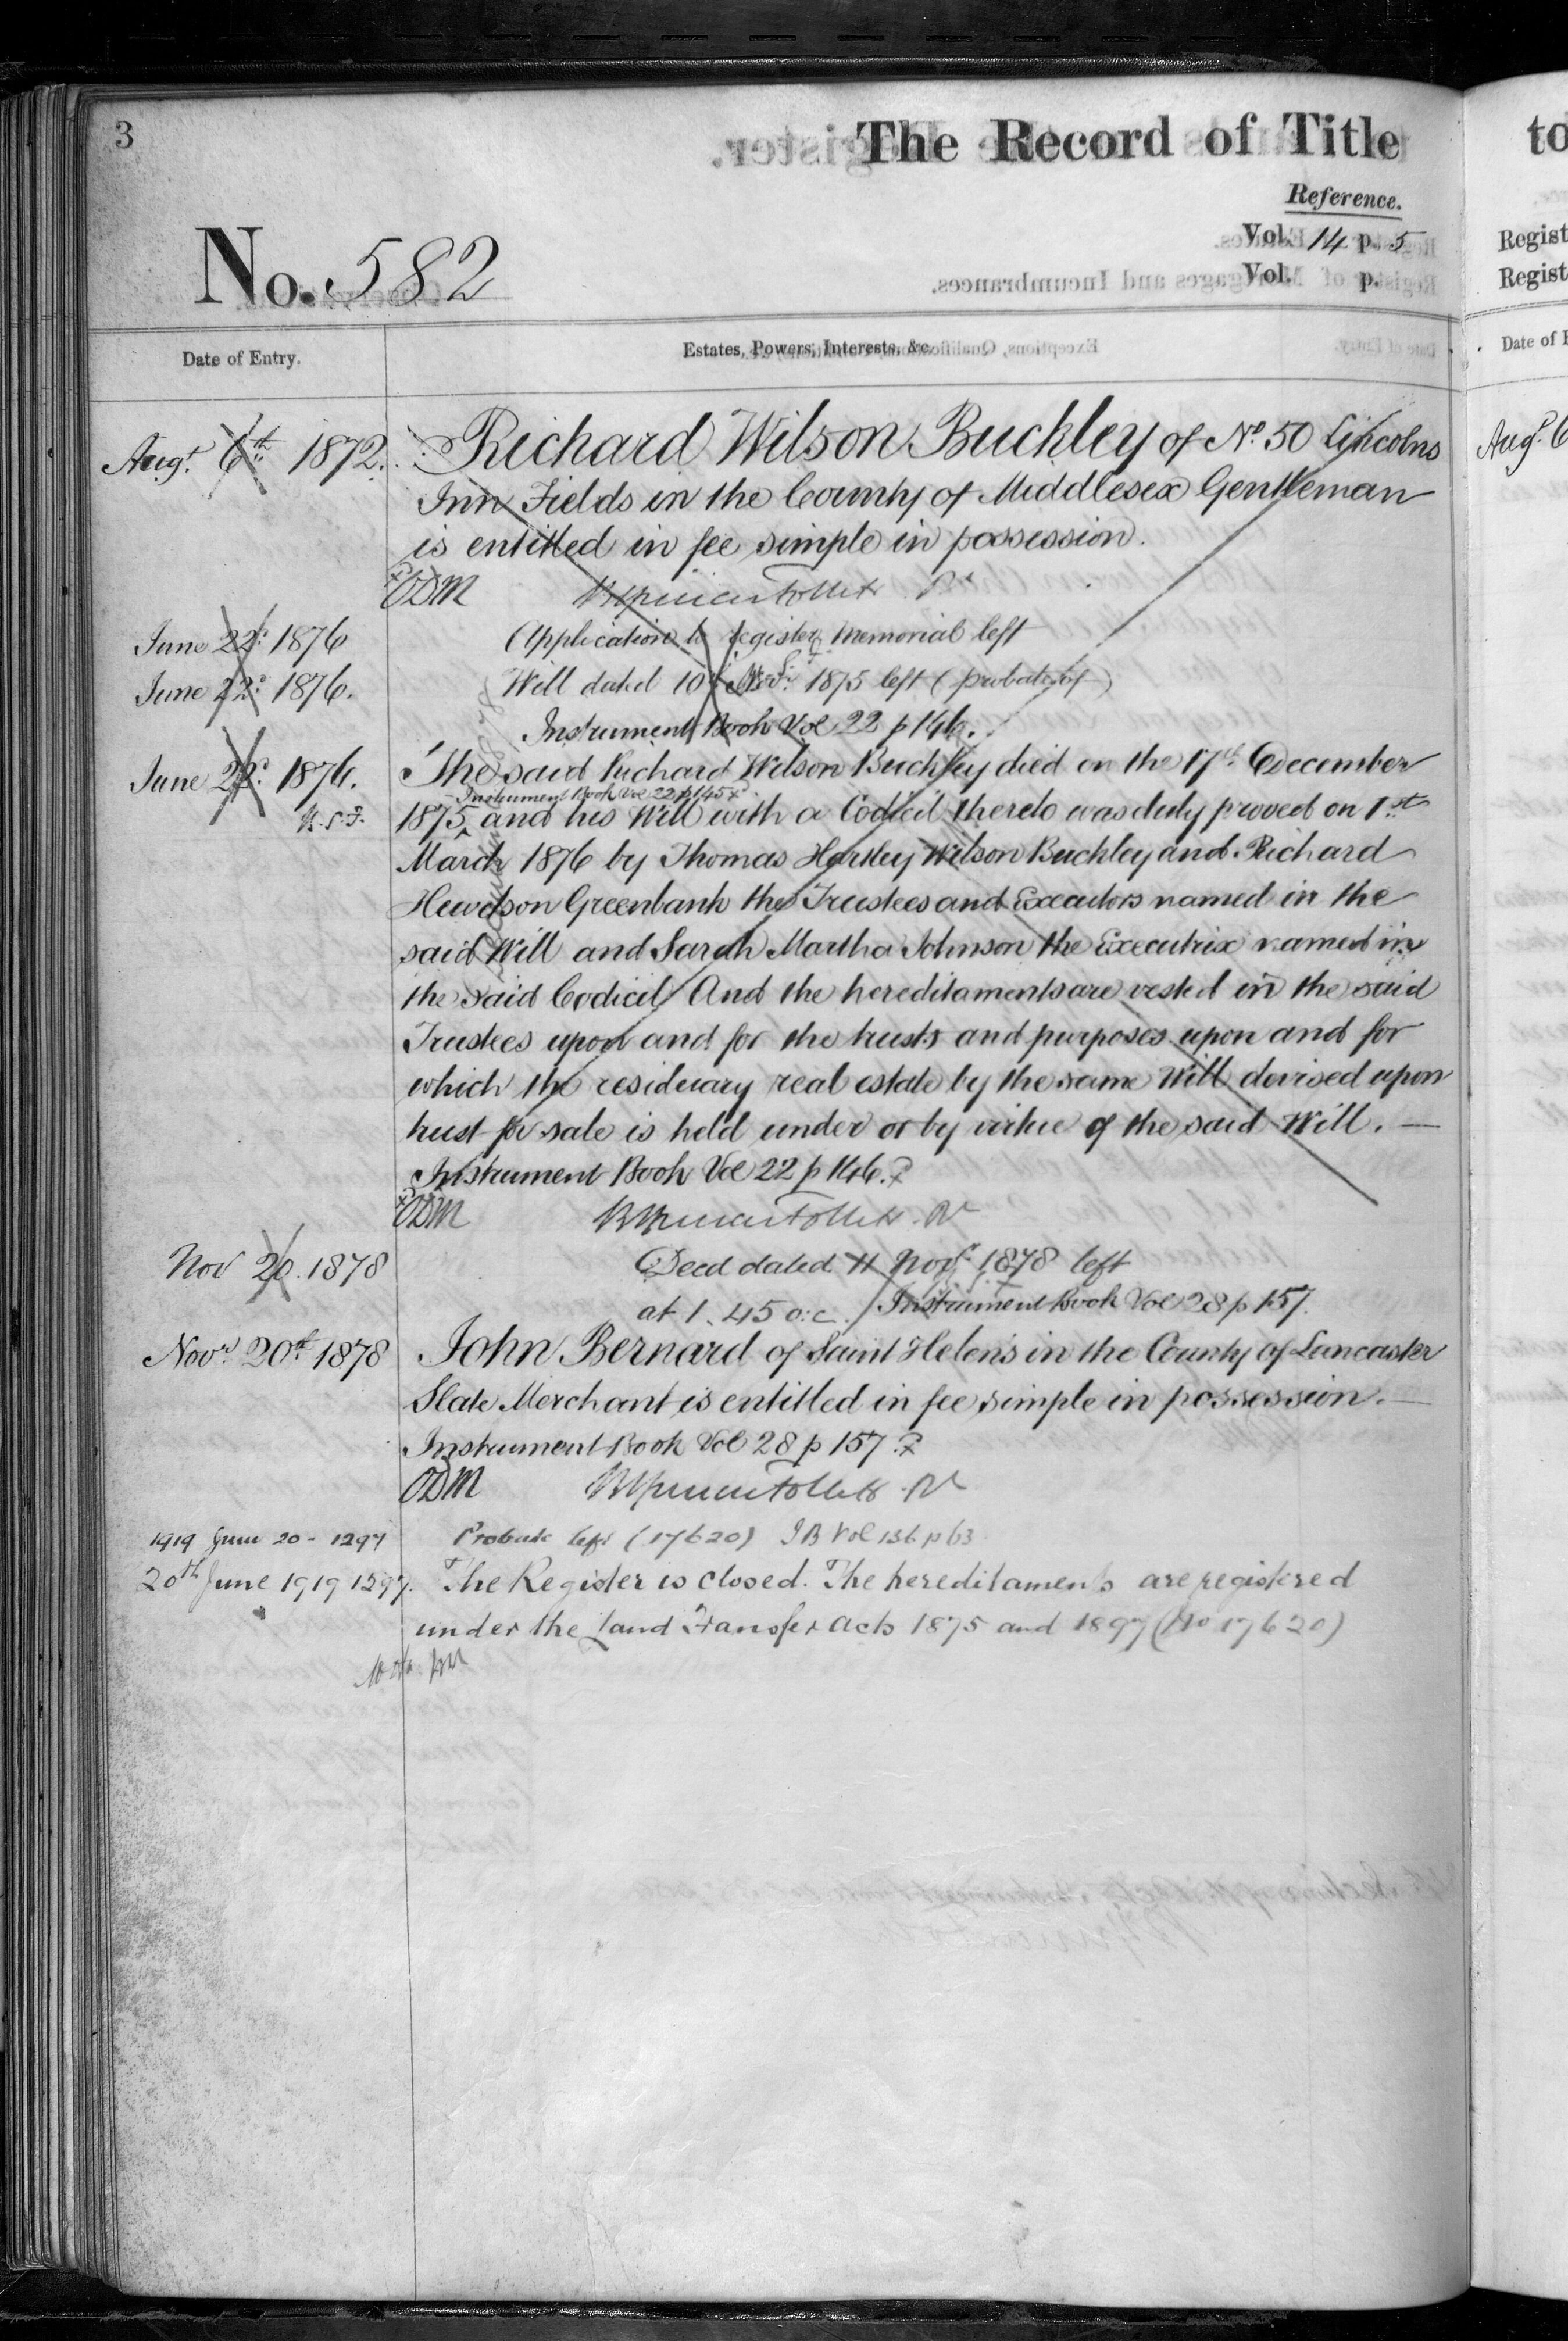 3
The Record of Title
Reference.
Vol. 14 p. 5
Vol. p.
No. 582
Date of Entry.
Estates, Powers, Interests, &c.
Augt. 6th 1872. Richard Wilson Buckley of No 50 Lincolns
Inn Fields in the County of Middlesex Gentleman
is entitled in fee simple in possession.
ODM
June 22d 1876 Application to register memorial left
June 22d 1876. Will dated 10 1875 left (probate of)
Instrument Book Vol 22 p 146.
June 22d 1876. The said Richard Wilson Buckley died on the 17th December
Instrument Book Vol 22 p 145
1875 and his Will with a Codicil thereto was duly proved on 1st
March 1876 by Thomas Hartley Wilson Buckley and Richard
Hewetson Greenbank the Trustees and Executors named in the
said Will and Sarah Martha Johnson the Executrix named in
the said Codicil And the hereditaments are vested in the said
Trustees upon and for the trusts and purposes upon and for
which the residuary real estate by the same Will devised upon
trust for sale is held under or by virtue of the said Will. —
Instrument Book Vol 22 p 146.
ODM
Nov 20. 1878 Deed dated 11 Novr. 1878 left
at 1.45 o:c. Instrument Book Vol 28 p 157.
Novr. 20th 1878 John Bernard of Saint Helens in the County of Lancaster
Slate Merchant is entitled in fee simple in possession. —
Instrument Book Vol 28 p 157.
ODM
1919 June 20 - 1297 Probate left (17620) IB Vol 136 p 63
20th June 1919 1297. The Register is closed. The hereditaments are registered
under the Land Transfer Acts 1875 and 1897 (No 17620)
to
Regist
Regist
Date of
Augt. 6